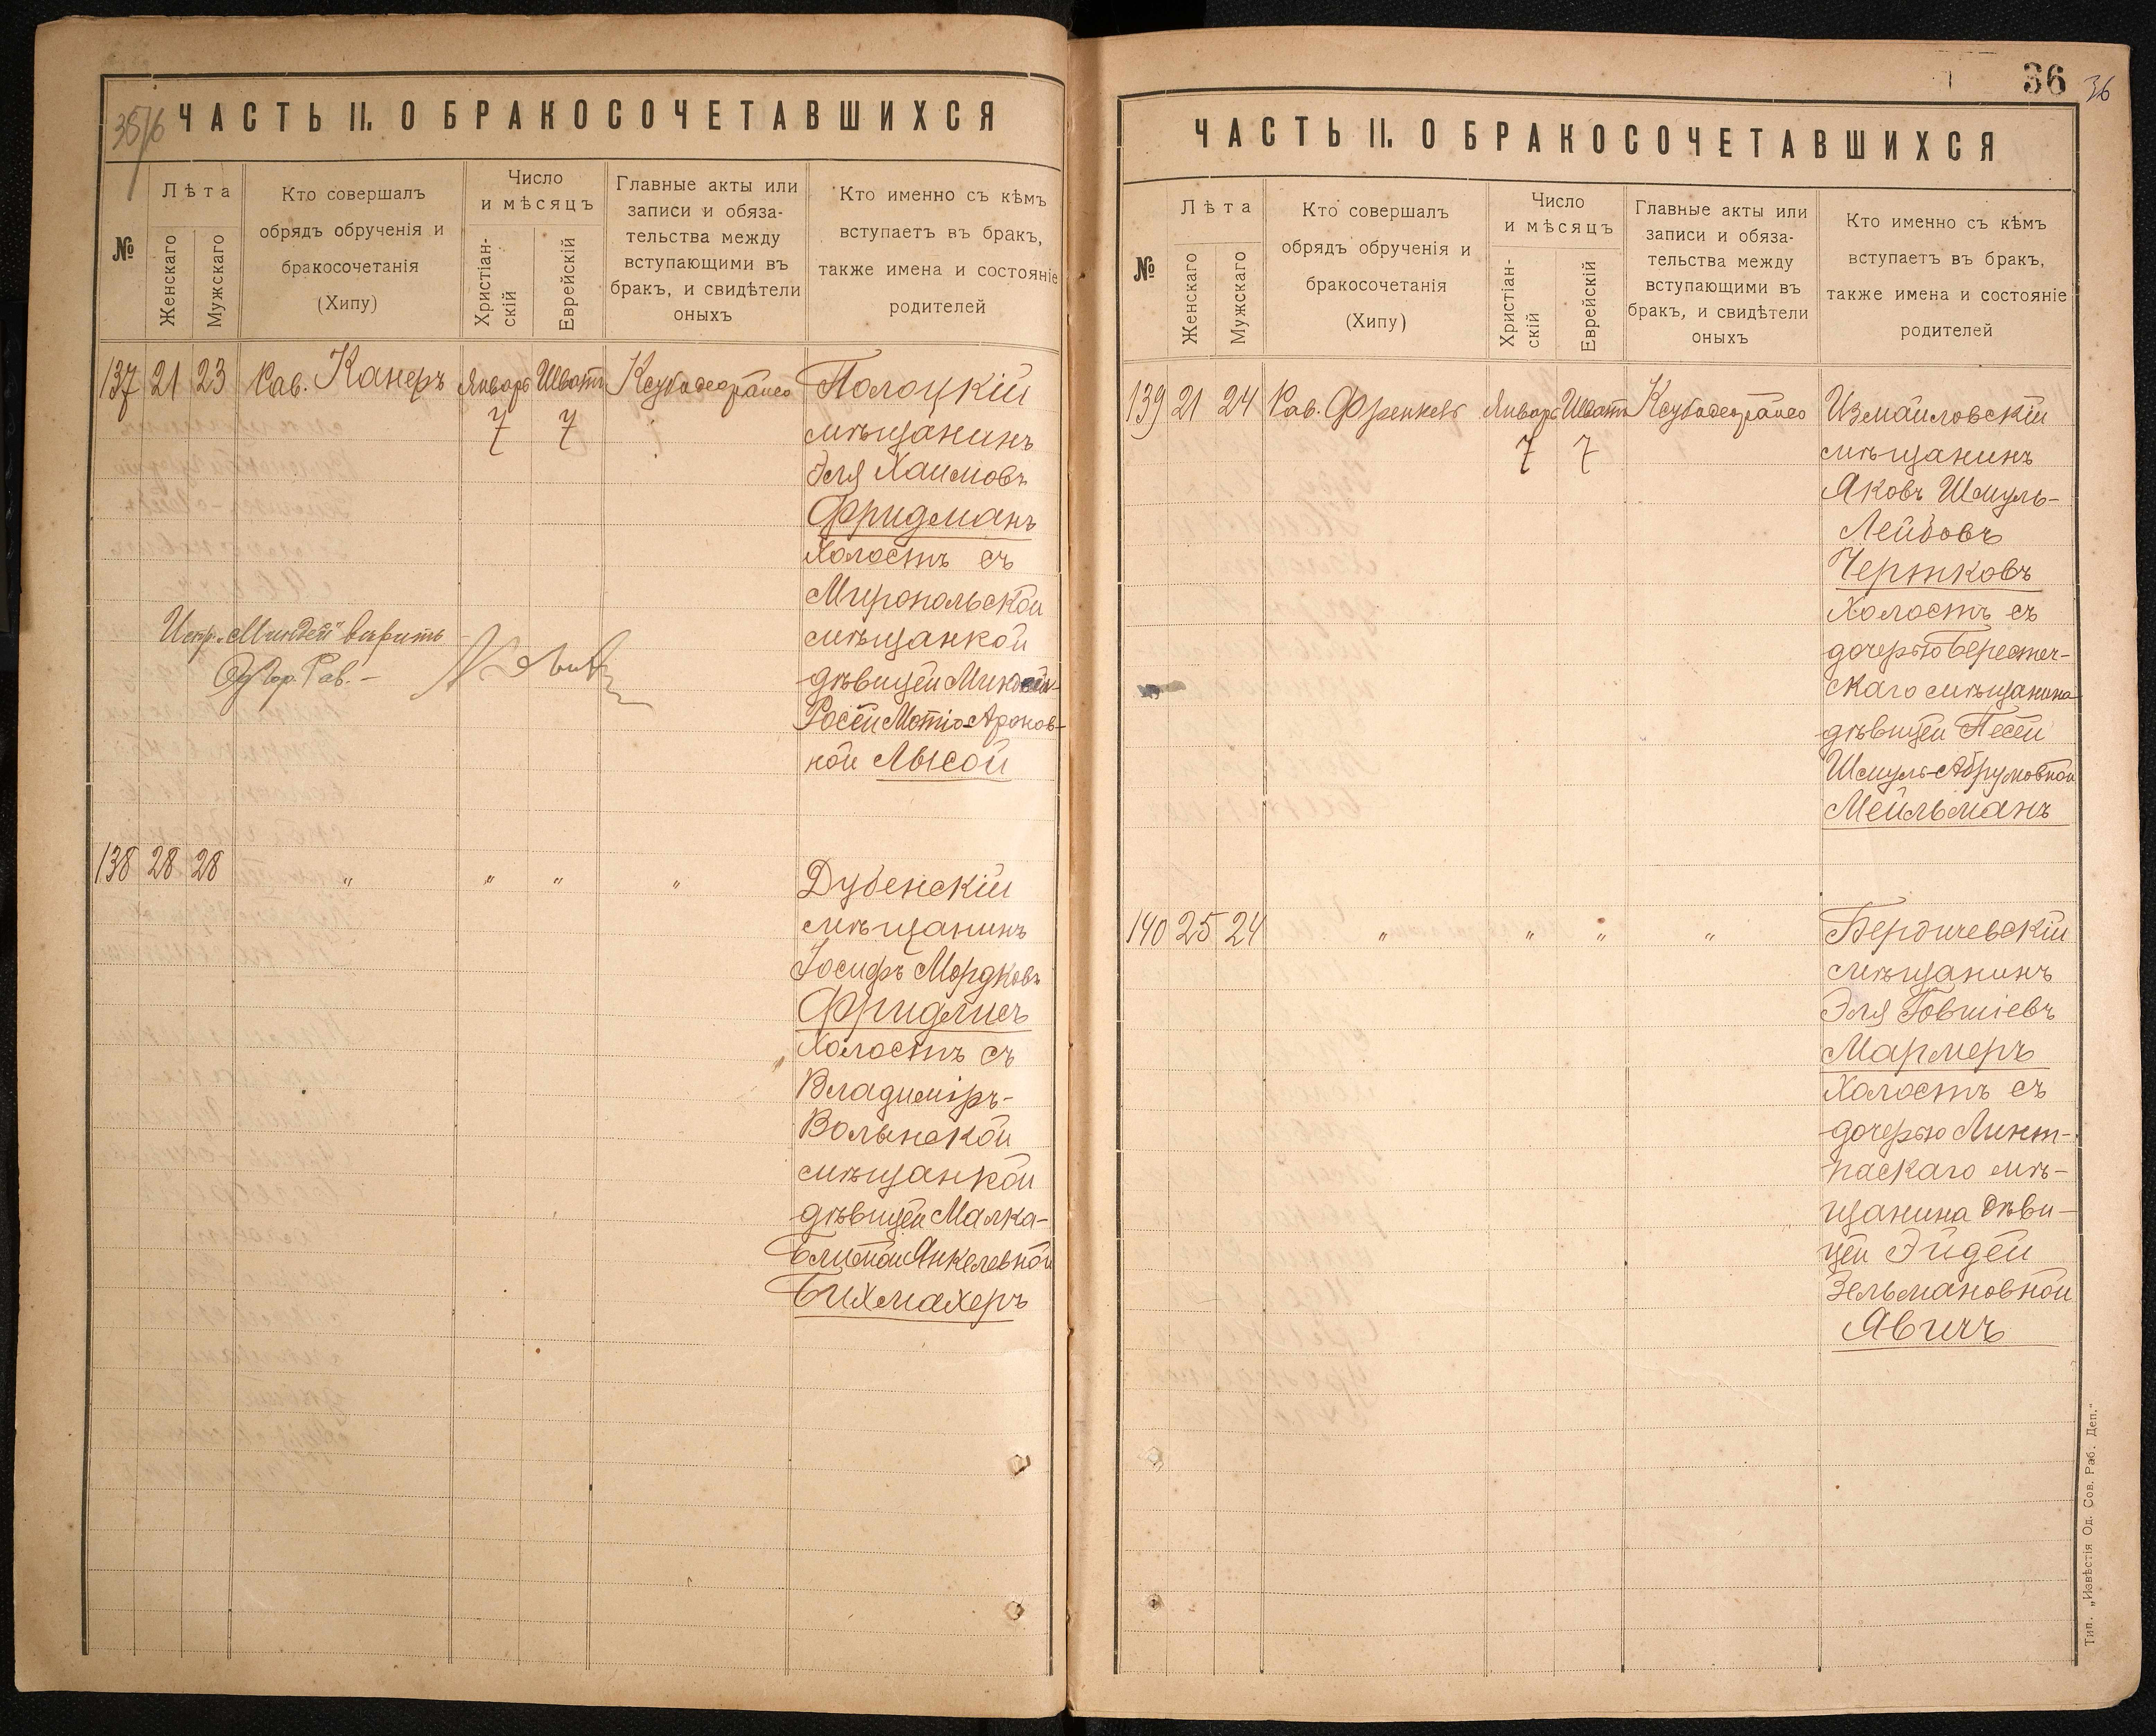 ЧАСТЬ II. О БРАКОСОЧЕТАВШИХСЯ
№
Лѣта
Женскаго
Мужскаго
Кто совершалъ
обрядъ обрученія и
бракосочетанія
(Хипу)
Число
и мѣсяцъ
Христіан-
скій
Еврейскій
Главные акты или
записи и обяза-
тельства между
вступающими въ
бракъ, и свидѣтели
оныхъ
Кто именно съ кѣмъ
вступаетъ въ бракъ,
также имена и состояніе
родителей
137 21 23 Рав. Канеръ Январь Шватъ Ксубадеорайсо Полоцкій
7 7 мѣщанинъ
Эля Хаимовъ
Фридманъ
Холостъ съ
Миропольской
Испр. „Миндей" вѣрить мѣщанкой
Од. Гор. Рав. дѣвицей Миндей-
Росей Мотіо-Ароновн-
ной Лысой
138 28 28 " " " " Дубенскій
мѣщанинъ
Іосифъ Мордковъ
Фридлисъ
Холостъ съ
Владиміръ-
Волынской
мѣщанкой
дѣвицей Малка-
Блимой Янкелевной
Бихмахеръ
36 36
ЧАСТЬ II. О БРАКОСОЧЕТАВШИХСЯ
№
Лѣта
Женскаго
Мужскаго
Кто совершалъ
обрядъ обрученія и
бракосочетанія
(Хипу)
Число
и мѣсяцъ
Христіан-
скій
Еврейскій
Главные акты или
записи и обяза-
тельства между
вступающими въ
бракъ, и свидѣтели
оныхъ
Кто именно съ кѣмъ
вступаетъ въ бракъ,
также имена и состояніе
родителей
139 21 24 Рав. Френкель Январь Шватъ Ксубадеорайсо Измаиловскій
7 7 мѣщанинъ
Яковъ Шмуль-
Лейбовъ
Чертковъ
Холостъ съ
дочерью Берестеч-
скаго мѣщанина
дѣвицей Песей
Шмуль-Абрумовной
Мейльманъ
140 25 24 " " " " Бердичевскій
мѣщанинъ
Эля Говшіевъ
Мармеръ
Холостъ съ
дочерью Линт-
паскаго мѣ-
щанина дѣви-
цей Эйдей
Зельмановной
Явичъ
Тип. „Извѣстія Од. Сов. Раб. Деп."